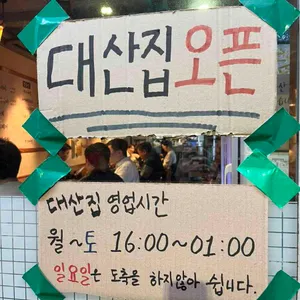 대산집오픈
대산집 영업시간
월~토 16:00~01:00
일요일은 도축을 하지않아 쉽니다.